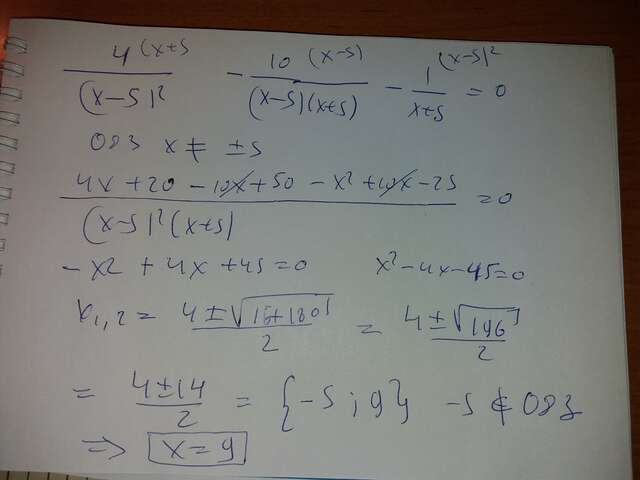 4 (x+5 / (x-5)² - 10 (x-5) / (x-5)(x+5) - 1 (x-5)² / x+5 = 0
ОВЗ x ≠ ±5
4x+20-10x+50-x²+10x-25 / (x-5)²(x+5) = 0
-x2+4x+45=0 x²-4x-45=0
x1,2 = 4±√16+180 / 2 = 4±√196 / 2
= 4±14 / 2 = {-5;9} -5 ∉ ОВЗ
=> x=9